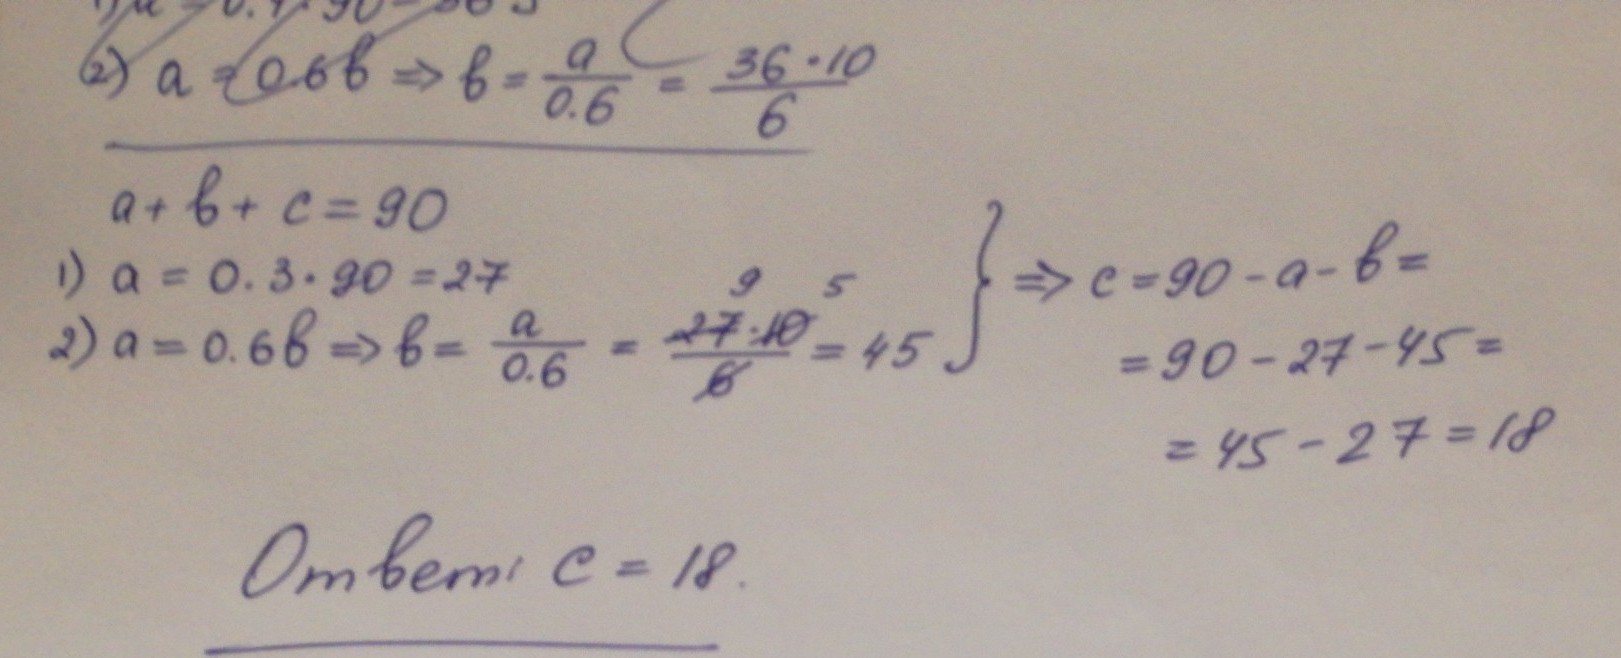 2) a = 0.6в => в = a/0.6 = 36·10/6
a + в + c = 90
1) a = 0.3·90 = 27
2) a = 0.6в => в = a/0.6 = 27·10/6 = 45
9 5
} => c = 90 - a - в =
= 90 - 27 - 45 =
= 45 - 27 = 18
Ответ: c = 18.